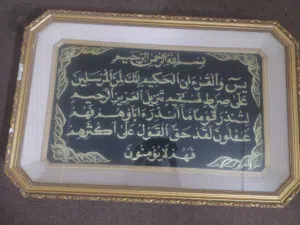 بسم الله الرحمن الرحيم
يس والقرءان الحكيم إنك لمن المرسلين
على صرط مستقيم تنزيل العزيز الرحيم
لتنذر قوما ما أنذر ءاباؤهم فهم
غفلون لقد حق القول على أكثرهم
فهم لا يؤمنون